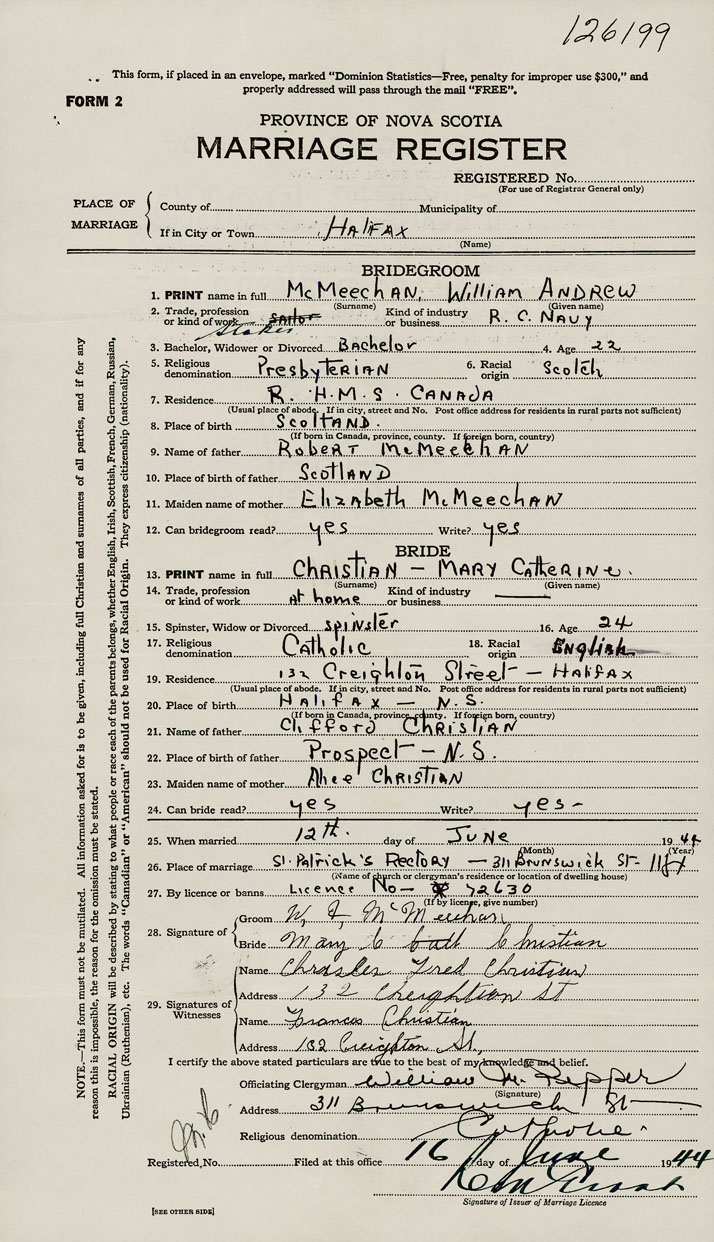 126199
This form, if placed in an envelope, marked "Dominion Statistics—Free, penalty for improper use $300," and
properly addressed will pass through the mail "FREE".
FORM 2
PROVINCE OF NOVA SCOTIA
MARRIAGE REGISTER
REGISTERED No.
(For use of Registrar General only)
PLACE OF MARRIAGE
County of Municipality of
If in City or Town HALIFAX
(Name)
BRIDEGROOM
1. PRINT name in full McMeechAN, William ANDREW
(Surname) (Given name)
2. Trade, profession or kind of work sailor Stoker Kind of industry or business R. C. NAVY
3. Bachelor, Widower or Divorced Bachelor 4. Age 22
5. Religious denomination PresbyTERIAN 6. Racial origin Scotch
7. Residence R. H.M.S. CANADA
(Usual place of abode. If in city, street and No. Post office address for residents in rural parts not sufficient)
8. Place of birth ScoTLAND.
(If born in Canada, province, county. If foreign born, country)
9. Name of father RobeRT McMeechAN
10. Place of birth of father ScoTLAND
11. Maiden name of mother ElizAbeth McMeechAN
12. Can bridegroom read? yes Write? yes
BRIDE
13. PRINT name in full ChRISTIAN — MARY CatheRINe.
(Surname) (Given name)
14. Trade, profession or kind of work At home Kind of industry or business —
15. Spinster, Widow or Divorced spINster 16. Age 24
17. Religious denomination Catholic 18. Racial origin English
19. Residence 132 Creighton Street — HaliFax
(Usual place of abode. If in city, street and No. Post office address for residents in rural parts not sufficient)
20. Place of birth HaliFax — N.S.
(If born in Canada, province, county. If foreign born, country)
21. Name of father Clifford ChRISTIAN
22. Place of birth of father Prospect — N.S.
23. Maiden name of mother Alice ChRISTIAN
24. Can bride read? yes Write? yes-
25. When married 12th. day of JUNE 1944
(Month) (Year)
26. Place of marriage St. Patrick's Rectory — 311 Brunswick St- Hfx
(Name of church or clergyman's residence or location of dwelling house)
27. By licence or banns Licence No— 72630
(If by license, give number)
28. Signature of
Groom W. A. McMeechan
Bride Mary Christian
29. Signatures of Witnesses
Name Fred Christian
Address 132 Creightion St
Name Frances Christian
Address 132 Creighton St.,
I certify the above stated particulars are true to the best of my knowledge and belief.
Officiating Clergyman William M. Pepper
(Signature)
Address 311 Brunswick St-
Religious denomination Catholic.
Registered, No. Filed at this office 16 day of June 1944
Signature of Issuer of Marriage Licence
[SEE OTHER SIDE]
NOTE.—This form must not be mutilated. All information asked for is to be given, including full Christian and surnames of all parties, and if for any
reason this is impossible, the reason for the omission must be stated.
RACIAL ORIGIN will be described by stating to what people or race each of the parents belongs, whether English, Irish, Scottish, French, German, Russian,
Ukrainian (Ruthenian), etc. The words "Canadian" or "American" should not be used for Racial Origin. They express citizenship (nationality).